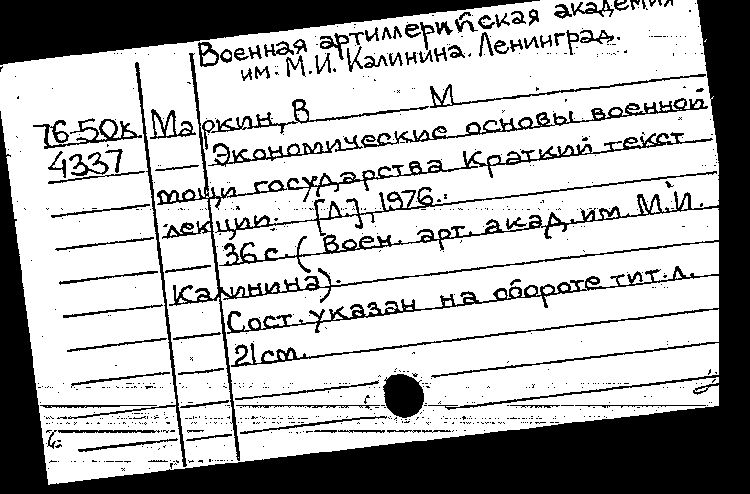 Военная артиллерийская академия
им. М.И. Калинина. Ленинград.
76-50к Маркин, В М
4337 Экономические основы военной
мощи государства Краткий текст
лекции. [Л.], 1976.
36 с. (Воен. арт. акад. им. М.И.
Калинина).
Сост. указан на обороте тит. л.
21 см.